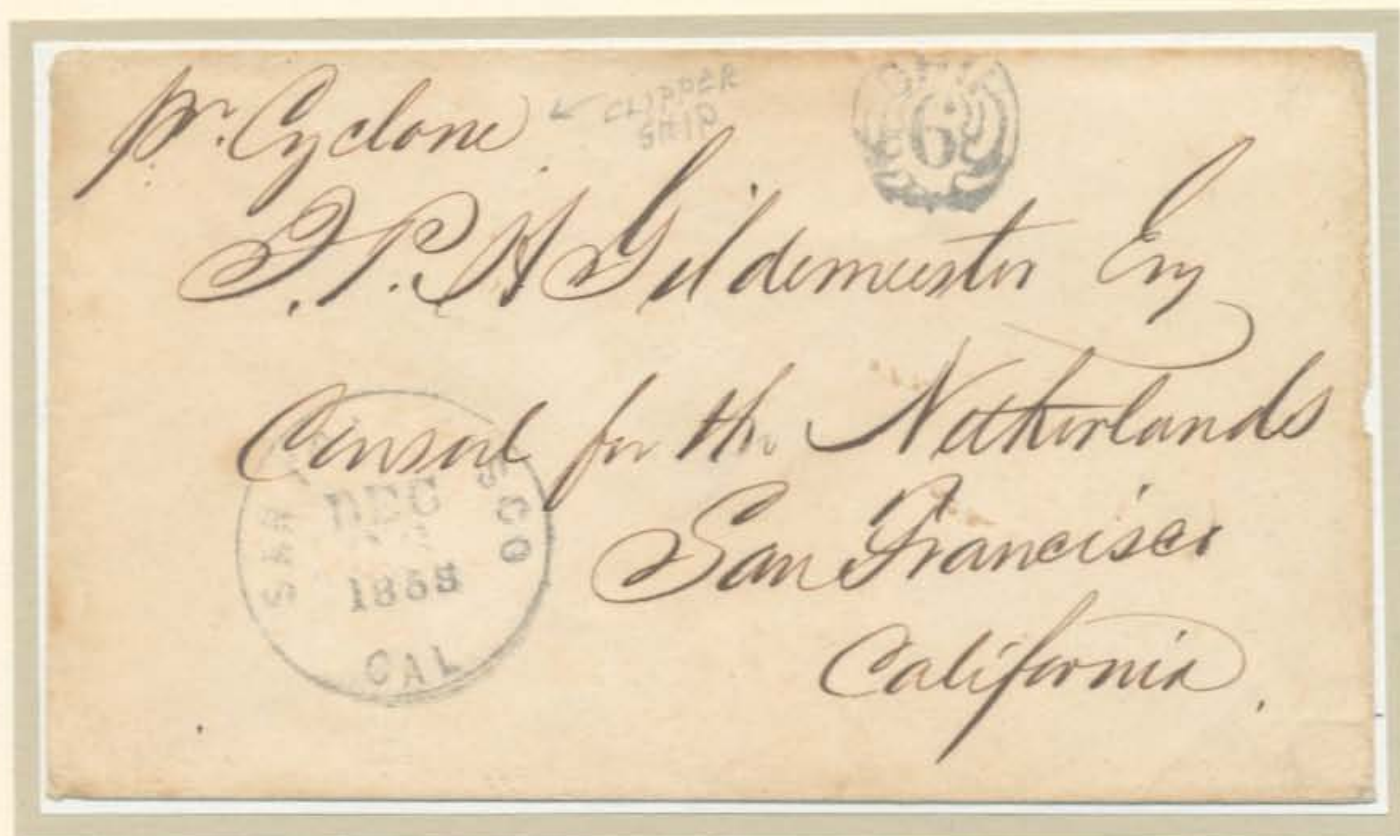 pr. Cyclone
← CLIPPER
SHIP
SHIP
6
J. P. H Gildemeester Esq
Consul for the Netherlands
San Francisco
California.
SAN SCO
DEC
1858
CAL